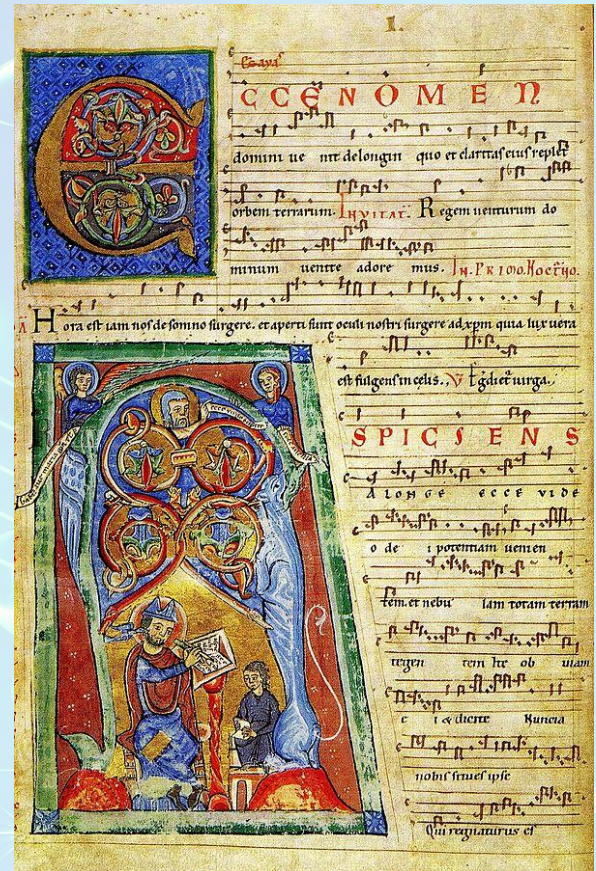 1.
Esayas
CCE NOMEN
domini ue nit de longin quo et claritas eius replet
orbem terrarum. INVITAT. Regem uenturum do
minum uenite adore mus. IN. PRIMO. Noct̄no.
Hora est iam nos de somno surgere. et aperti sunt oculi nostri surgere ad xpm quia lux uera
est fulgens in celis. V Egdiet uirga.
SPICIENS
A LONGE ECCE VIDE
o de i potentiam uenien
tem. et nebu lam totam terram
tegen tem Ite ob uiam
e i & dicite Nuncia
nobis si tu es ipse
Qui regnaturus es